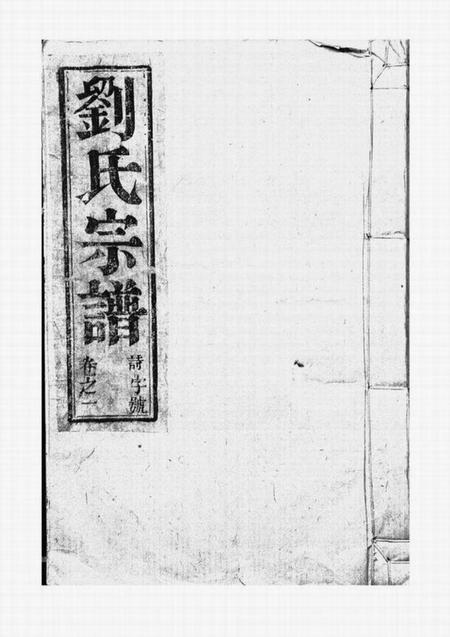 劉氏宗譜
詩字號
卷之一